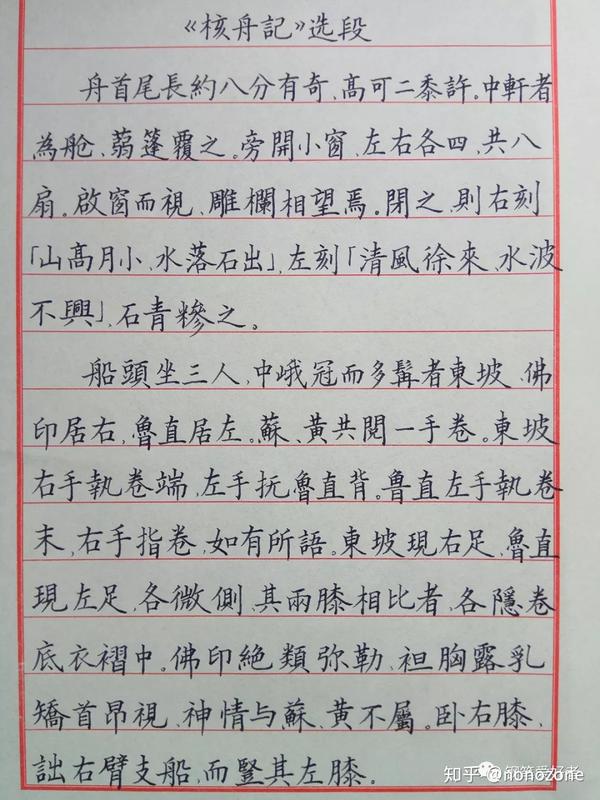 《核舟記》选段
舟首尾長約八分有奇、高可二黍許。中軒者
為舱、蒻篷覆之。旁開小窗、左右各四、共八
扇。啟窗而視、雕欄相望焉。閉之、則右刻
「山高月小、水落石出」、左刻「清風徐來、水波
不興」、石青糝之。
船頭坐三人、中峨冠而多髯者東坡、佛
印居右、魯直居左。蘇、黃共閱一手卷。東坡
右手執卷端、左手抚魯直背。魯直左手執卷
末、右手指卷、如有所語。東坡現右足、魯直
現左足、各微側、其兩膝相比者、各隱卷
底衣褶中。佛印絕類弥勒、袒胸露乳
矯首昂視、神情与蘇、黃不屬。卧右膝、
詘右臂支船、而豎其左膝.
知乎 @nonozone
钢笔爱好者